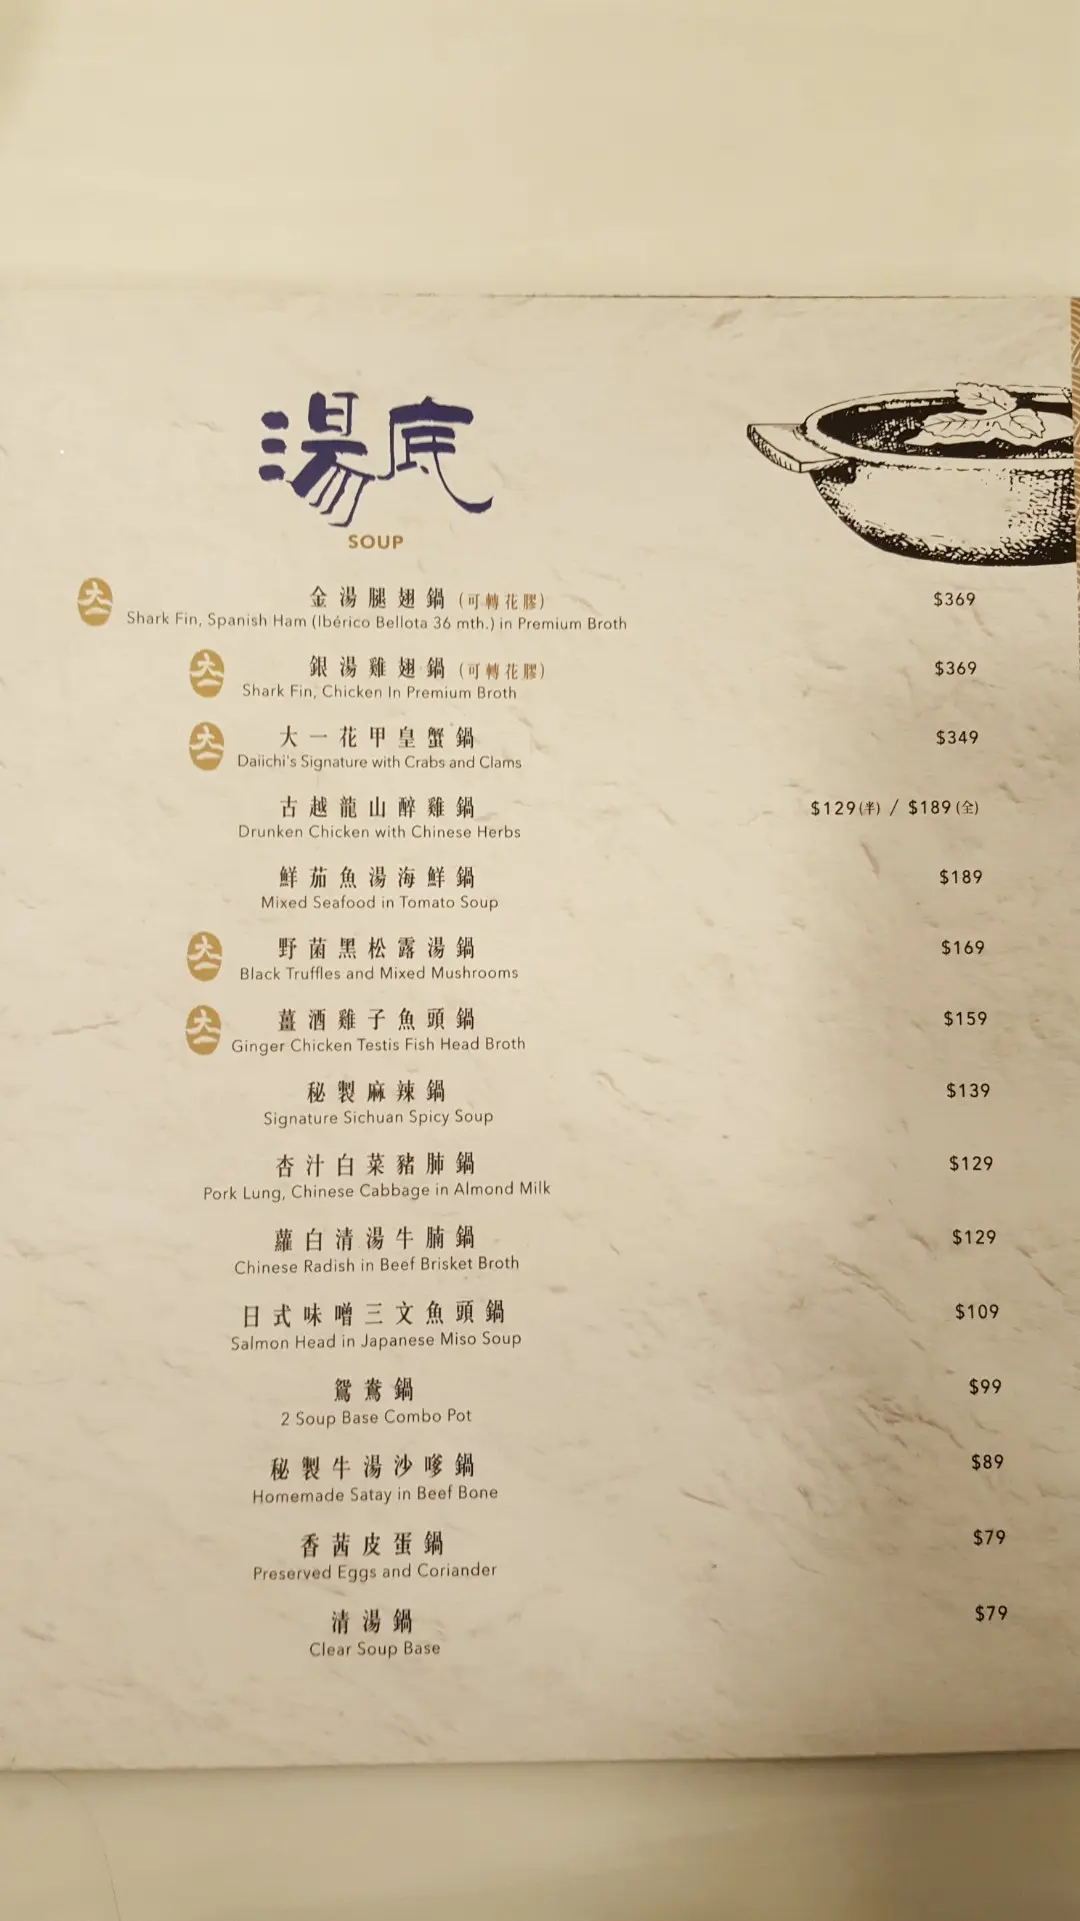 湯底
SOUP
大一 金湯腿翅鍋 (可轉花膠) $369
Shark Fin, Spanish Ham (Ibérico Bellota 36 mth.) in Premium Broth
大一 銀湯雞翅鍋 (可轉花膠) $369
Shark Fin, Chicken In Premium Broth
大一 大一花甲皇蟹鍋 $349
Daiichi's Signature with Crabs and Clams
古越龍山醉雞鍋 $129(半) / $189(全)
Drunken Chicken with Chinese Herbs
鮮茄魚湯海鮮鍋 $189
Mixed Seafood in Tomato Soup
大一 野菌黑松露湯鍋 $169
Black Truffles and Mixed Mushrooms
大一 薑酒雞子魚頭鍋 $159
Ginger Chicken Testis Fish Head Broth
秘製麻辣鍋 $139
Signature Sichuan Spicy Soup
杏汁白菜豬肺鍋 $129
Pork Lung, Chinese Cabbage in Almond Milk
蘿白清湯牛腩鍋 $129
Chinese Radish in Beef Brisket Broth
日式味噌三文魚頭鍋 $109
Salmon Head in Japanese Miso Soup
鴛鴦鍋 $99
2 Soup Base Combo Pot
秘製牛湯沙嗲鍋 $89
Homemade Satay in Beef Bone
香茜皮蛋鍋 $79
Preserved Eggs and Coriander
清湯鍋 $79
Clear Soup Base